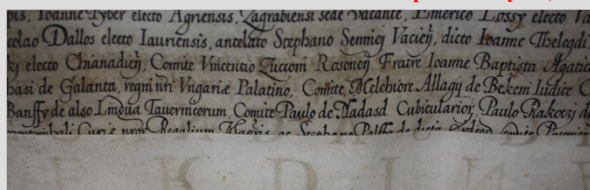 pis, Ioanne Pyber electo Agriensis, Zagrabiens sede vacante, Emerico Lossy electo Va
colao Dallos electo Iauriensis, antelato Stephano Sennieÿ Vacieÿ, dicto Ioanne Thelegdi
electo Chianadieÿ, Comite Vincentio Zucconi Rosoneÿ Fratre Ioanne Baptista Agatic
hasi de Galanta, regni nri Vngariæ Palatino. Comite Melchiore Allagÿ de Bekeni Iudice C
Banffÿ de also Lindua Tauernicorum, Comite Paulo de Nadasd Cubiculariorÿ, Paulo Rakoczj d
Curiæ Regalium Stephano Palffÿ de